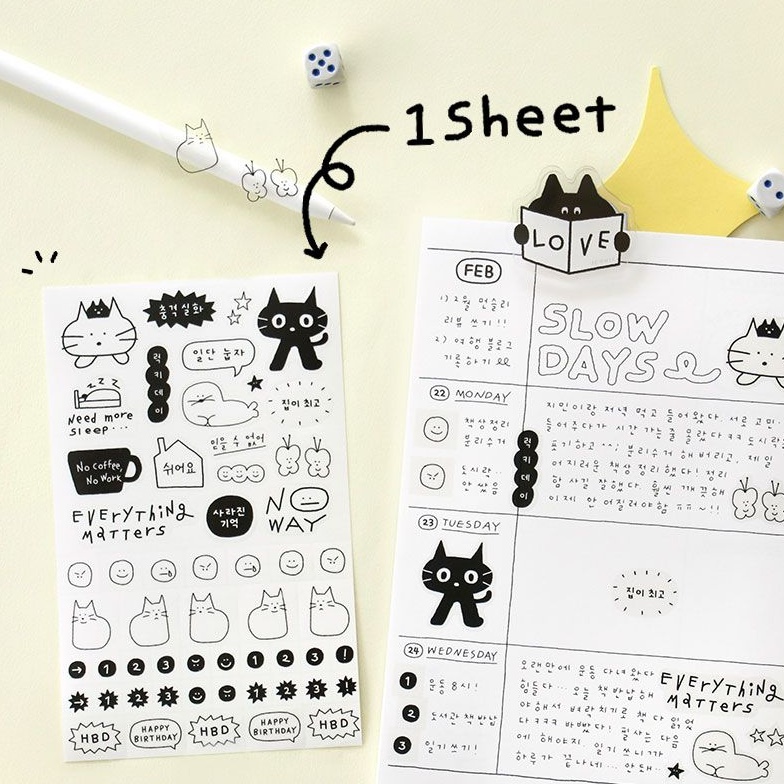 1 Sheet
충격실화
릭
키
데
이
일단 눕자
z z z
Need more
sleep...
집이 최고
No Coffee,
No Work
쉬어요
믿을 수 없어
EVERYTHING
MATTERS
사라진
기억
NO
WAY
→ 1 2 3 1 2 3 !
→ 1 2 3 1 2 3 !
HBD
HAPPY
BIRTHDAY
HBD
HAPPY
BIRTHDAY
HBD
LOVE
FEB
1) 2월 먼슬리
리뷰 쓰기!!
2) 여행 블로그
기록하기
SLOW
DAYS
22 MONDAY
책상정리
분리수거
도시락..
안 쌌음
릭
키
데
이
지인이랑 저녁 먹고 들어왔다. 서로 고민
들어주다가 시간 가는 줄 몰랐다ㅋㅋ 도시락
포기하고 ^^; 분리수거 해버리고, 제일
어지러운 책상정리했다! 정리
함 사길 잘했다. 훨씬 깨끗해
이제 안 어질러야함 ㅠㅠ~!!
23 TUESDAY
집이 최고
24 WEDNESDAY
1 운동 8시!
2 도서관 책 반납
3 일기쓰기!
오랜만에 운동 다녀왔다
힘들다... 오늘 책 반납해
야해서 벼락치기로 책 다 읽었
다ㅋㅋㅋ 바빴다! 필사는 다음
에 해야지. 일기 쓰니까
하루가 끝나네... 안돼..
EVERYTHING
MATTERS